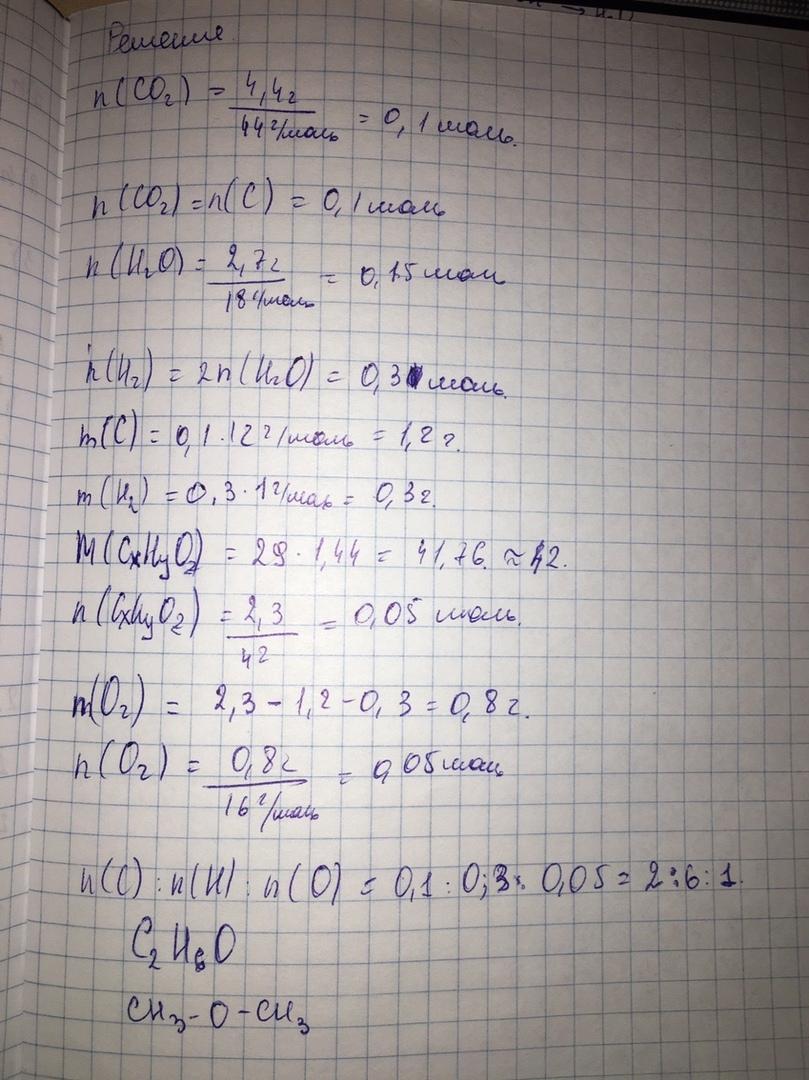 Решение
n(CO₂) = 4,4г / 44г/моль = 0,1 моль.
n(CO₂) = n(C) = 0,1 моль
n(H₂O) = 2,7г / 18г/моль = 0,15 моль
n(H₂) = 2n(H₂O) = 0,3 моль.
m(C) = 0,1 · 12 г/моль = 1,2 г.
m(H₂) = 0,3 · 1г/моль = 0,3г.
M(CxHyO₂) = 29 · 1,44 = 41,76. ≈ 42.
n(CxHyO₂) = 2,3 / 42 = 0,05 моль.
m(O₂) = 2,3 - 1,2 - 0,3 = 0,8 г.
n(O₂) = 0,8г / 16г/моль = 0,05 моль
n(C) : n(H) : n(O) = 0,1 : 0,3 : 0,05 = 2:6:1.
C₂H₆O
CH₃-O-CH₃